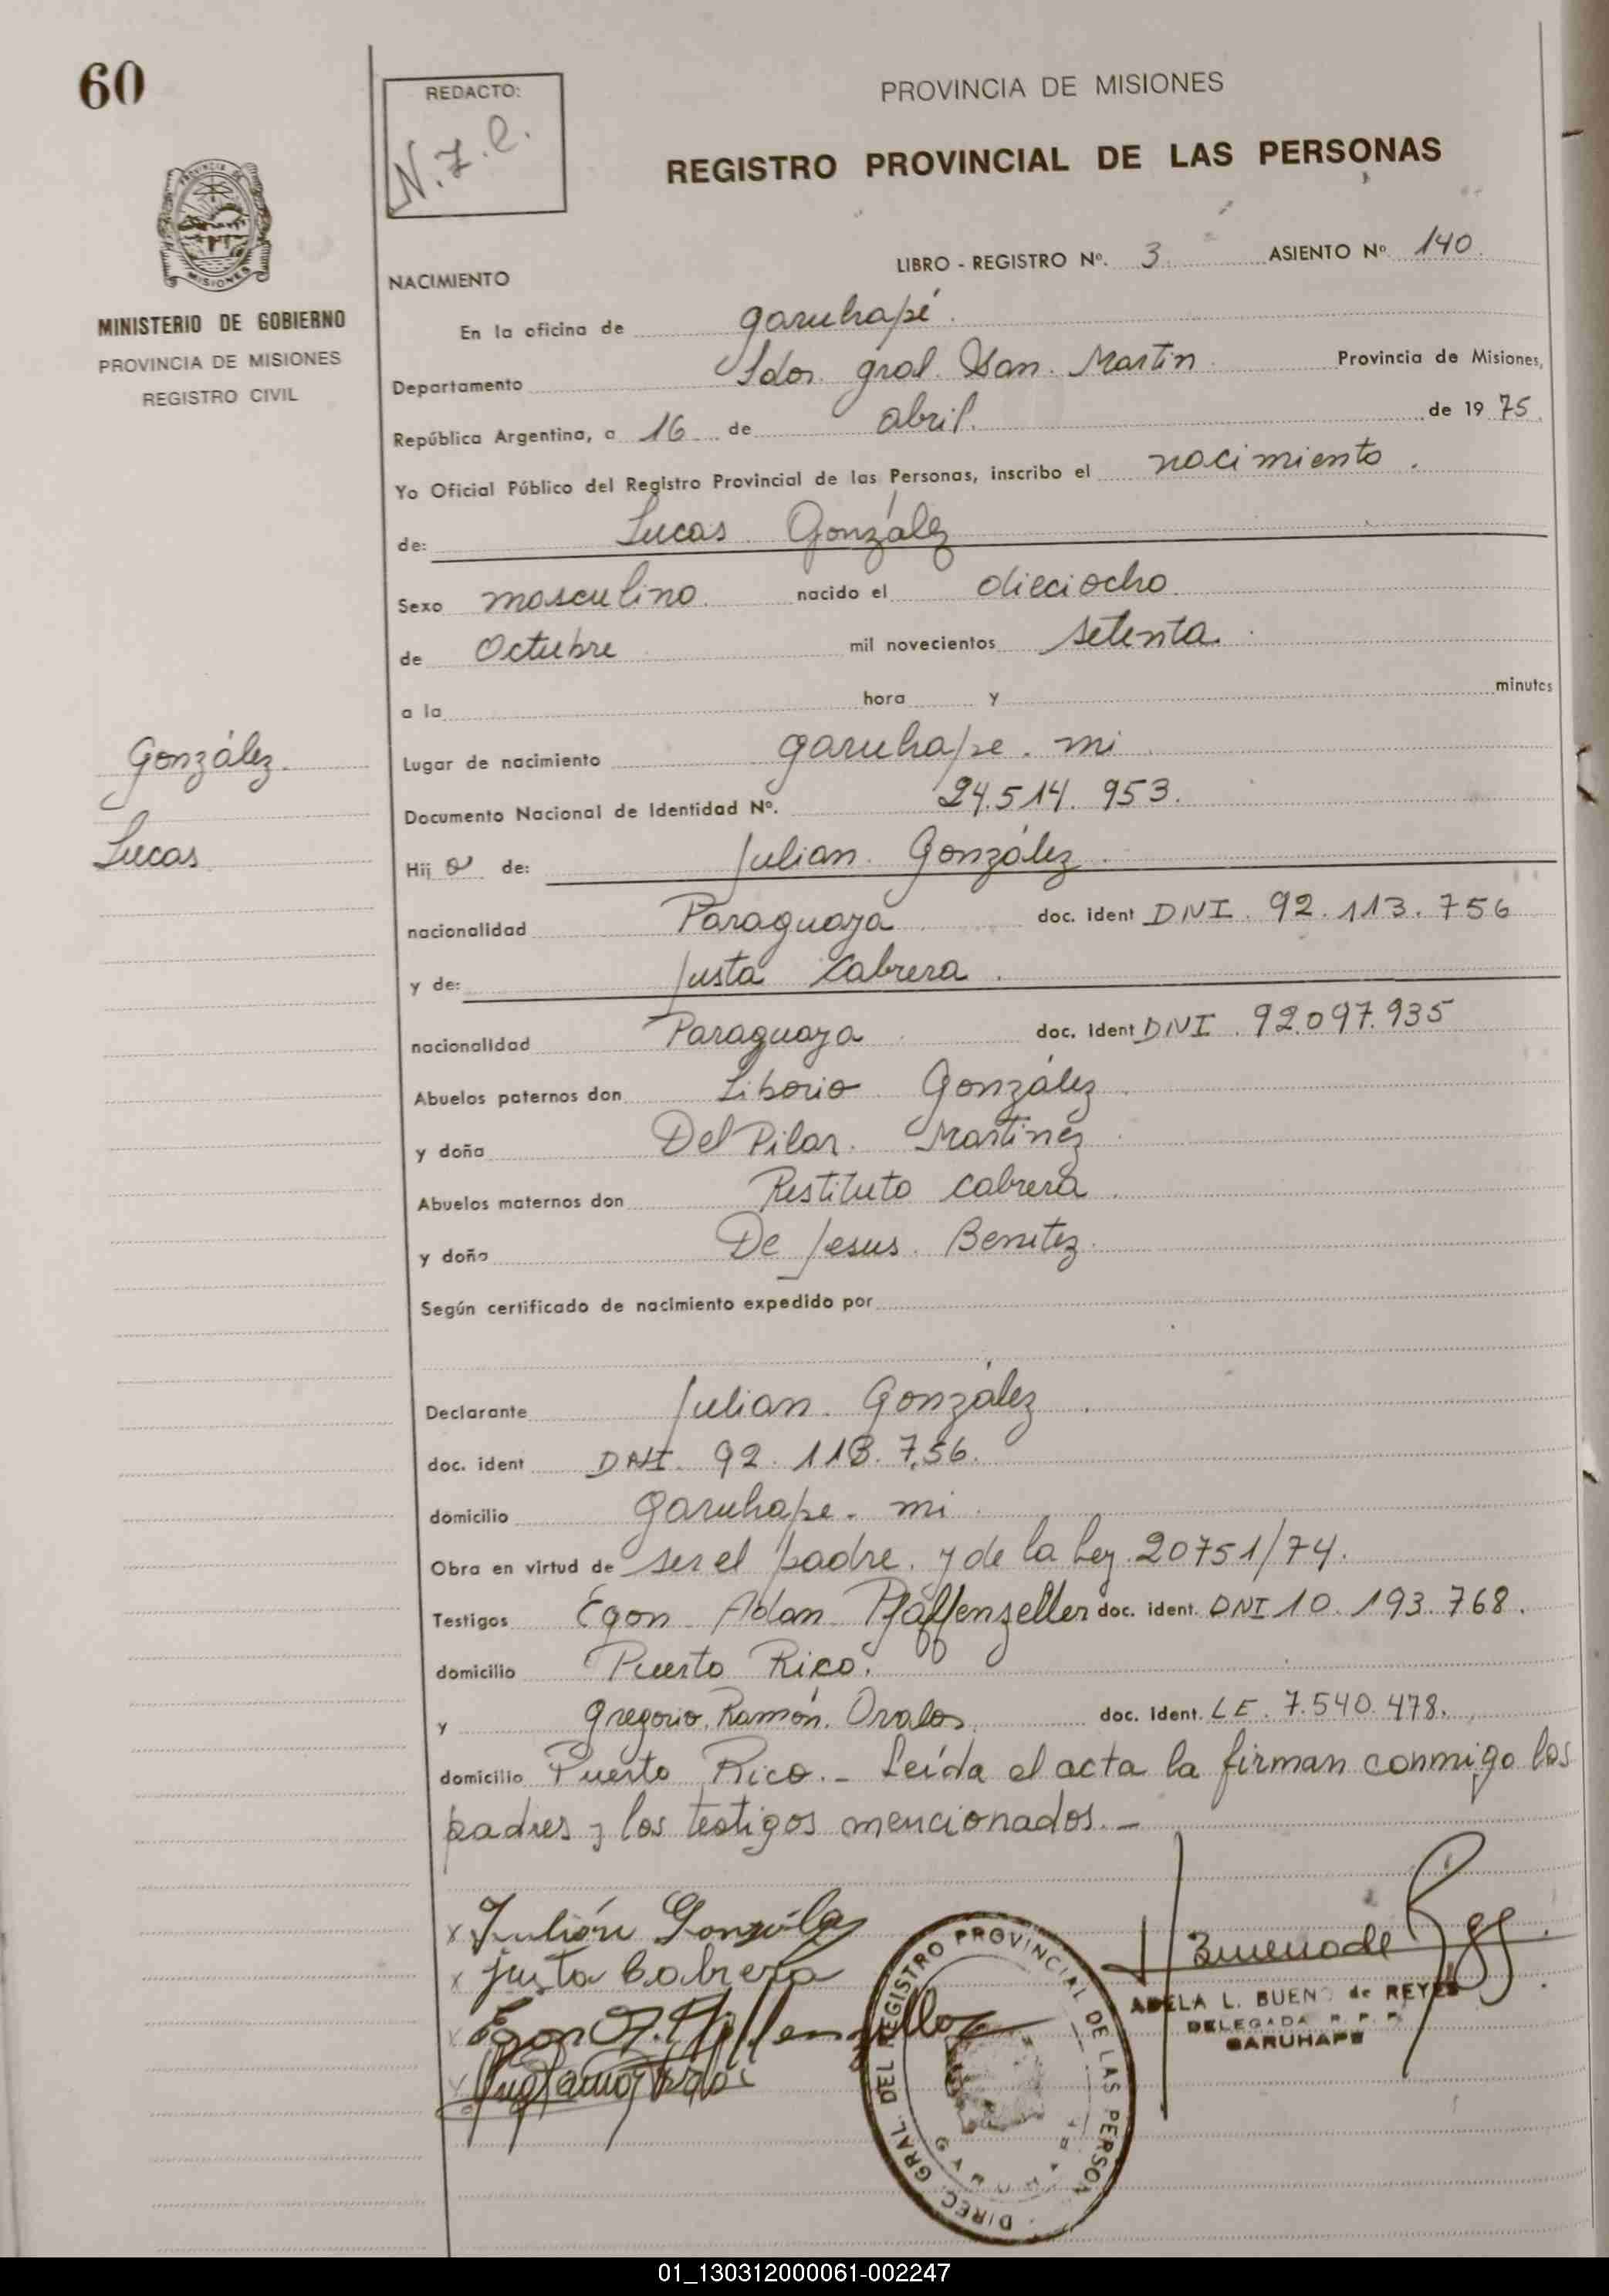 60
REDACTO:
PROVINCIA DE MISIONES
REGISTRO PROVINCIAL DE LAS PERSONAS
PROVINCIA DE
MISIONES
MINISTERIO DE GOBIERNO
PROVINCIA DE MISIONES
REGISTRO CIVIL
LIBRO - REGISTRO Nº. 3. ASIENTO Nº 140.
NACIMIENTO
En la oficina de Garuhapé.
Departamento Ldor. Gral. San. Martin. Provincia de Misiones,
República Argentina, a 16 de abril. de 19 75.
Yo Oficial Público del Registro Provincial de las Personas, inscribo el nacimiento.
de: Lucas González
Sexo masculino. nacido el dieciocho
de Octubre mil novecientos setenta.
a la hora y minutos
González.
Lucas
Lugar de nacimiento Garuhape. mi
Documento Nacional de Identidad Nº. 24.514.953.
Hij o de: Julian. González.
nacionalidad Paraguaya doc. ident DNI. 92.113.756
y de: Justa Cabrera.
nacionalidad Paraguaya doc. ident DNI. 92.097.935
Abuelos paternos don Liborio González
y doña Del Pilar. Martinez
Abuelos maternos don Restituto Cabrera
y doña De Jesus. Benitez.
Según certificado de nacimiento expedido por
Declarante Julian. González
doc. ident DNI. 92.113.756.
domicilio Garuhape. mi.
Obra en virtud de ser el padre. y de la Ley. 20751/74.
Testigos Egon Adan Pfäffenzeller doc. ident. DNI 10.193.768.
domicilio Puerto Rico.
y Gregorio. Ramón. Ovalos doc. ident. LE. 7.540.478.
domicilio Puerto Rico.- Leída el acta la firman conmigo los
padres y los testigos mencionados.-
x Julián González
x justa Cabrera
Buenode
ADELA L. BUENO de REYES
DELEGADA R. P. P.
GARUHAPE
DIREC. GRAL. DEL REGISTRO PROVINCIAL DE LAS PERSON
01_130312000061-002247